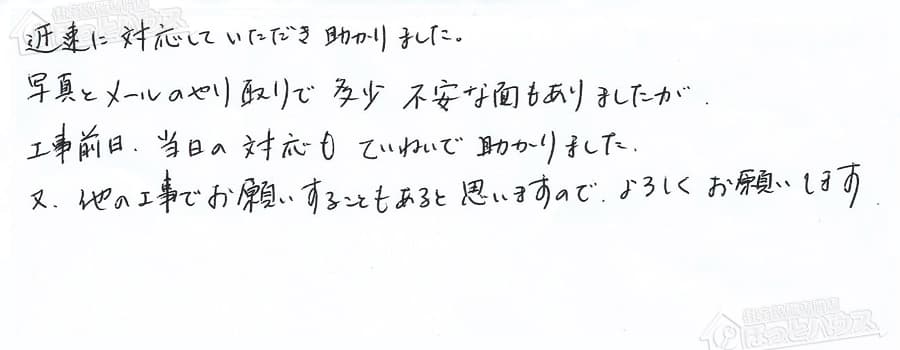 迅速に対応していただき助かりました。
写真とメールのやり取りで多少不安な面もありましたが、
工事前日、当日の対応もていねいで助かりました。
又、他の工事でお願いすることもあると思いますので、よろしくお願いします
ほっとハウス